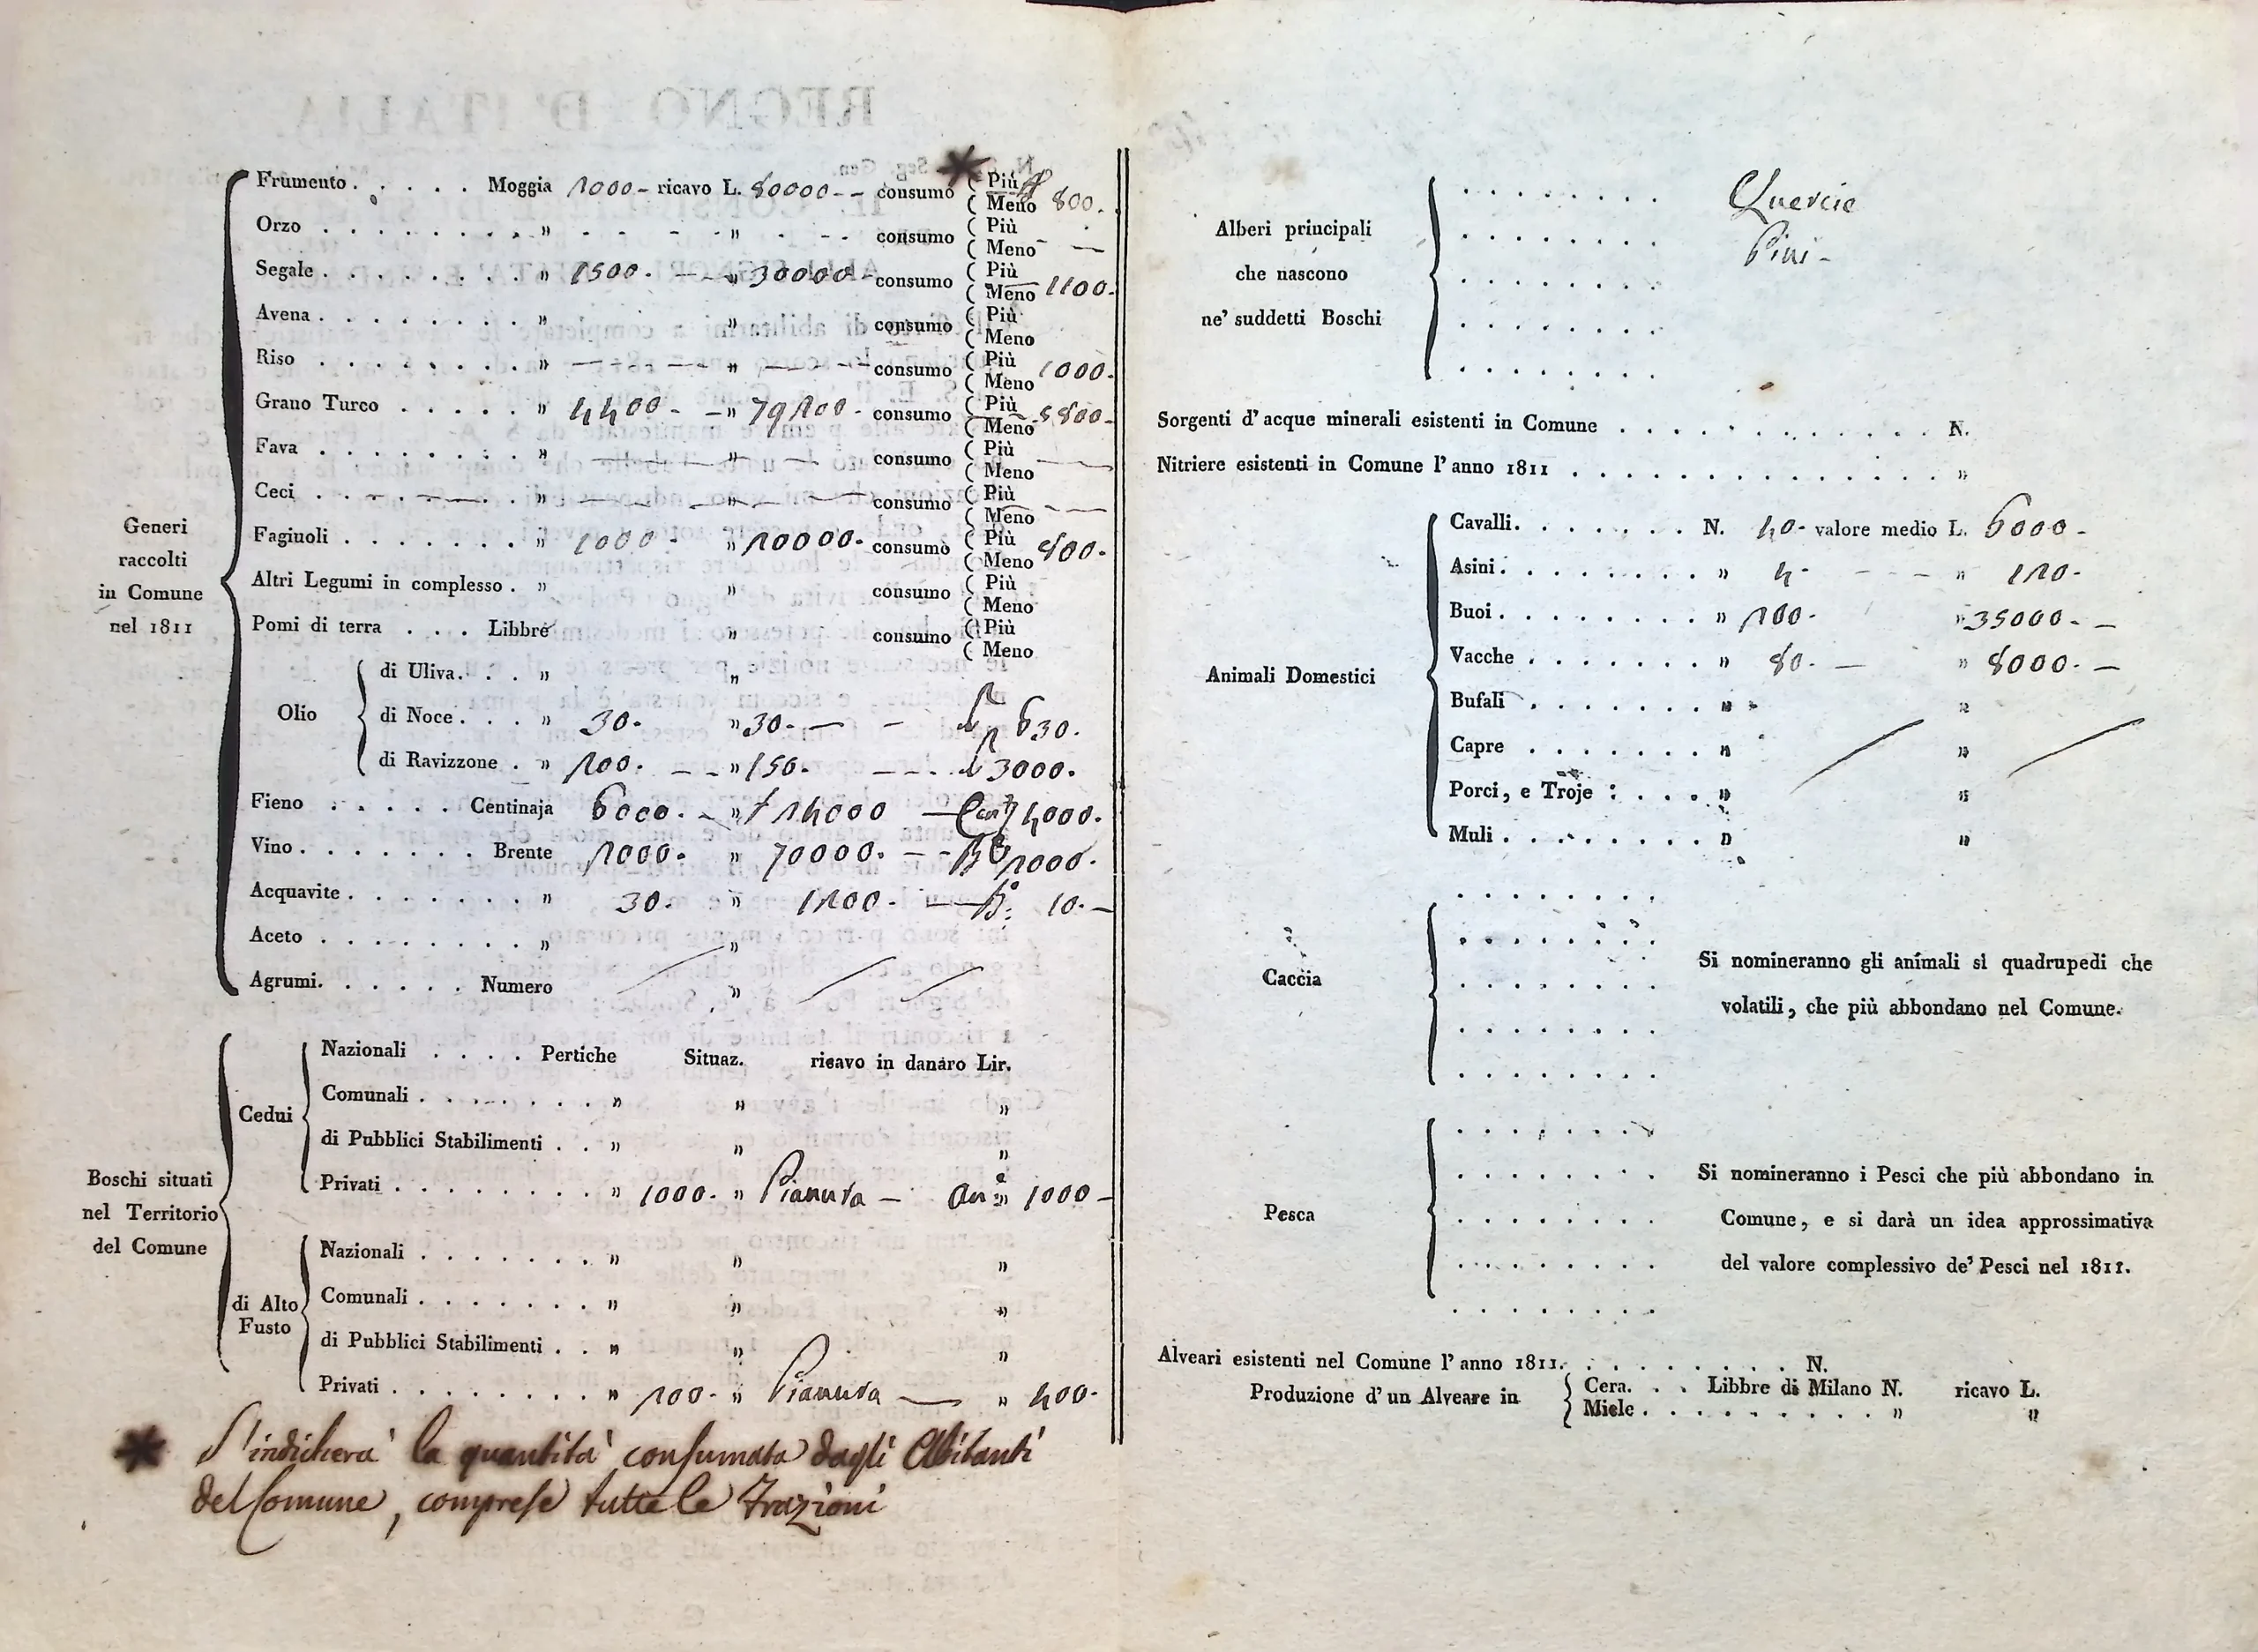 Frumento . . . . . Moggia 1000 - ricavo L. 80000 - - consumo ( Più ( Meno 800.
Orzo . . . . . . . . . » - - - - » - - - consumo ( Più ( Meno - —
Segale . . . . . . . . » 1500. — » 30000 - consumo ( Più ( Meno 1100.
Avena . . . . . . . . » » consumo ( Più ( Meno
Riso . . . . . . . . . » — — — » — — — consumo ( Più ( Meno 1000.
Grano Turco . . . . . » 4400 - — » 79200 - consumo ( Più ( Meno 5800 -
Fava . . . . . . . . » — — » — consumo ( Più ( Meno —
Ceci . . . . . . . . » — — » — consumo ( Più ( Meno — —
Generi
raccolti
in Comune
nel 1811
Fagiuoli . . . . . . . » 1000 - » 10000. consumo ( Più ( Meno 800.
Altri Legumi in complesso . » » consumo ( Più ( Meno
Pomi di terra . . . Libbre » consumo ( Più ( Meno
Olio
di Uliva . . . » »
di Noce . . . » 30. » 30. — - 630.
di Ravizzone . » 100. — - » 150. — - - 3000.
Fieno . . . . . . Centinaja 6000. - » 14000 — Cent 4000.
Vino . . . . . . . Brente 1000. » 70000. — - 1000.
Acquavite . . . . . . . » 30. » 1200. — 10. —
Aceto . . . . . . . . . » »
Agrumi. . . . . . Numero »
Boschi situati
nel Territorio
del Comune
Cedui
Nazionali . . . . Pertiche Situaz. ricavo in danaro Lir.
Comunali . . . . . . . . » » »
di Pubblici Stabilimenti . . » » »
Privati . . . . . . . . . » 1000. » Pianura — » 1000 —
di Alto
Fusto
Nazionali . . . . . . . . » » »
Comunali . . . . . . . » » »
di Pubblici Stabilimenti . . » » »
Privati . . . . . . . . . » 100. » Pianura — » 400.
* S'indicherà la quantità consumata dagli Abitanti
del Comune, comprese tutte le Frazioni
Alberi principali
che nascono
ne' suddetti Boschi
Quercie
Pini -
Sorgenti d'acque minerali esistenti in Comune . . . . . . . . . . . . . N.
Nitriere esistenti in Comune l'anno 1811 . . . . . . . . . . . . . . »
Animali Domestici
Cavalli. . . . . . . . N. 40 - valore medio L. 6000 -
Asini. . . . . . . . . » 4 - — - — » 120 -
Buoi . . . . . . . . . » 100. » 35000. - —
Vacche . . . . . . . . » 80. — » 8000. —
Bufali . . . . . . . . » »
Capre . . . . . . . . » »
Porci, e Troje : . . . . » »
Muli . . . . . . . . . » »
Caccia
Si nomineranno gli animali sì quadrupedi che
volatili, che più abbondano nel Comune.
Pesca
Si nomineranno i Pesci che più abbondano in
Comune, e si darà un idea approssimativa
del valore complessivo de' Pesci nel 1811.
Alveari esistenti nel Comune l'anno 1811. . . . . . . . . . N.
Produzione d'un Alveare in
Cera. . . Libbre di Milano N. ricavo L.
Miele . . . . . . . . . . » »